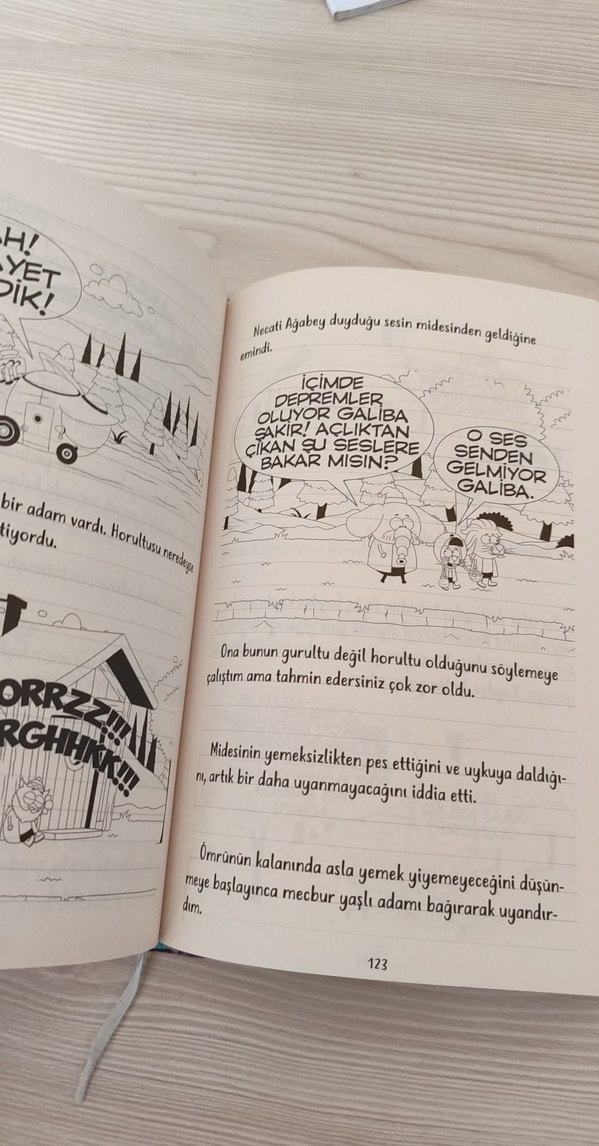 AH!
DİK!
bir adam vardı. Horultusu neredeyse
tiyordu.
ORRZZ!!!
RGHHKK!!!
Necati Ağabey duyduğu sesin midesinden geldiğine
emindi.
İÇİMDE
DEPREMLER
OLUYOR GALİBA
ŞAKİR! AÇLIKTAN
ÇIKAN ŞU SESLERE
BAKAR MISIN?
O SES
SENDEN
GELMİYOR
GALİBA.
Ona bunun gurultu değil horultu olduğunu söylemeye
çalıştım ama tahmin edersiniz çok zor oldu.
Midesinin yemeksizlikten pes ettiğini ve uykuya daldığı-
nı, artık bir daha uyanmayacağını iddia etti.
Ömrünün kalanında asla yemek yiyemeyeceğini düşün-
meye başlayınca mecbur yaşlı adamı bağırarak uyandır-
dım.
123